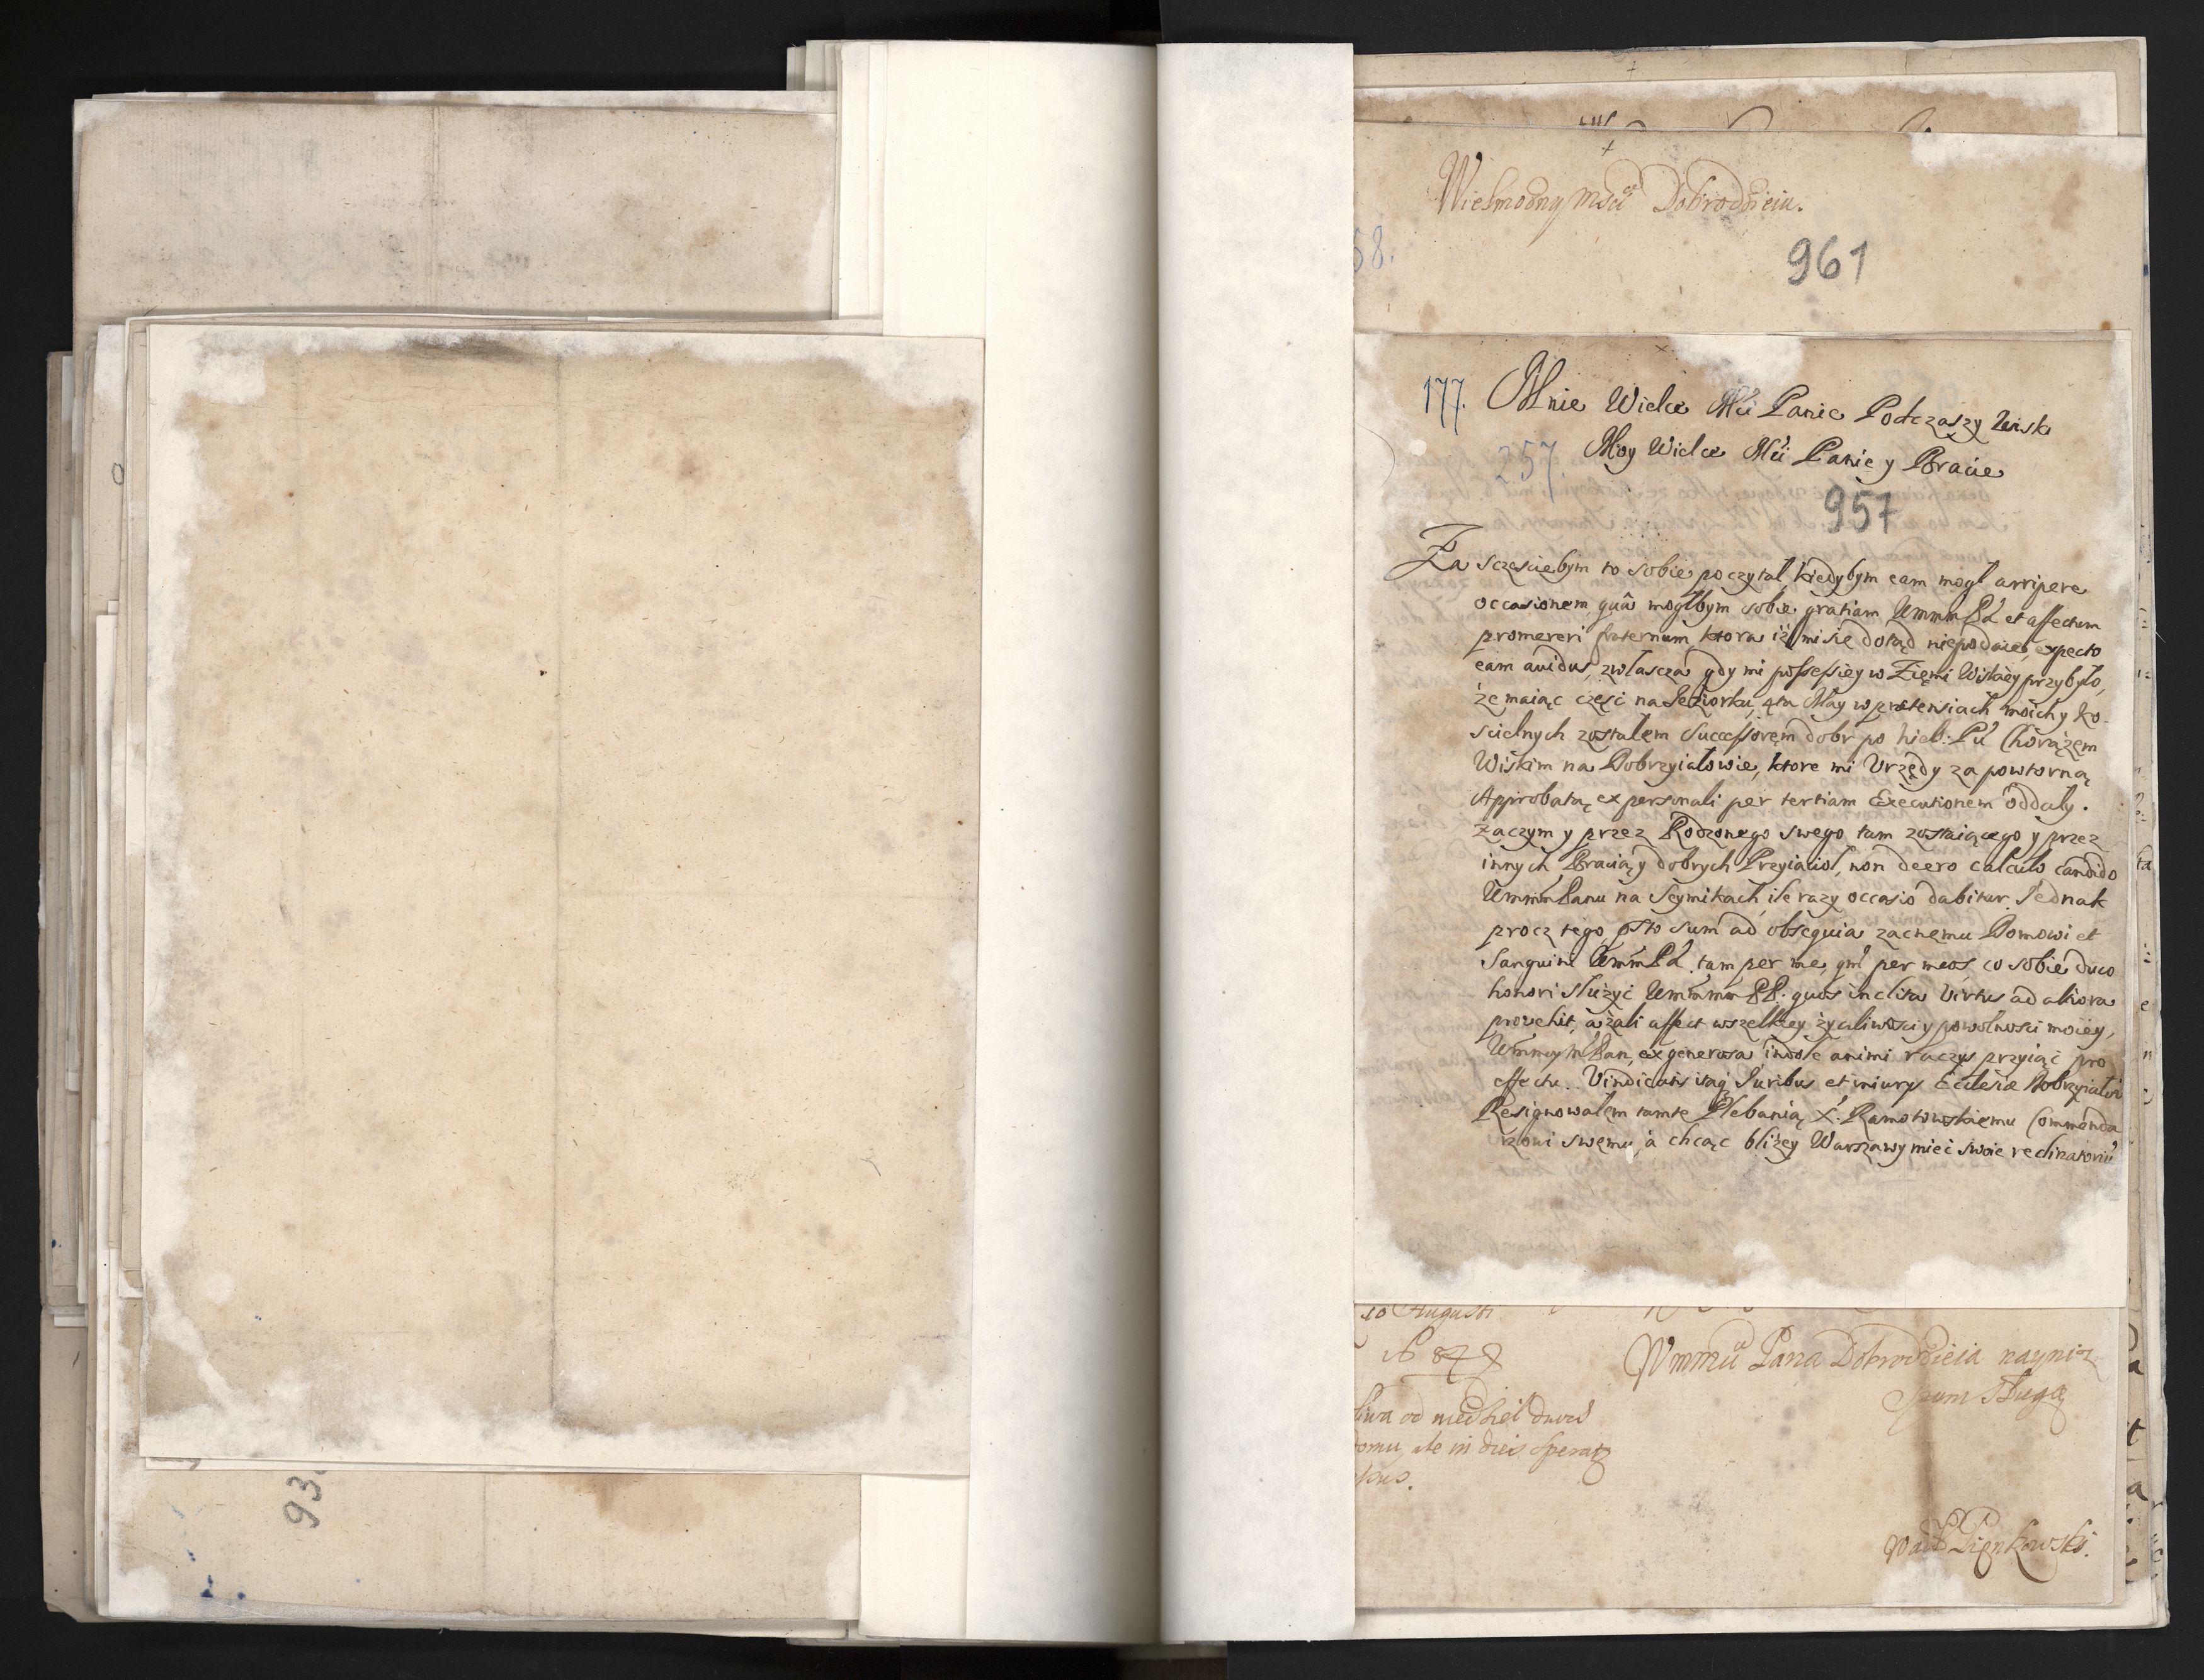 Wielmożny Mścĩ Dobrodzieiu.
58.
961
177. Mnie Wielce Mći Panie Podczaszy Wiski
257. Moy Wielce Mći Panie y Bracie
957
Za sczęsciebym to sobie poczytał, kiedybym eam mogł arripere
occasionem, quâ mogłbym sobie gratiam UmmmPá et affectum
promereri fraternum, ktora iż mi się dotąd niepodaie, expecto
eam avidus, zwłascza gdy mi possessiey w Ziemi Wiskiey przybyło,
że maiąc część na Jeziorku, 4ta May w pretensiach moich y ko-
scielnych zostałem Successorem dobr po nieb: Pú Chorązem
Wiskim na Dobrzyiałowie, ktore mi Urzędy za powtorną
Approbatą ex personali per tertiam Executionem oddały.
Zaczym y przez Rodzonego swego tam zostaiącego y przez
innych Bracią y dobrych Przyiacioł, non deero calculo candido
UmmmPanu na Seymikach, ile razy occasio dabitur. Jednak
procz tego, psto sum ad obsequia zacnemu Domowi et
Sanguini UmmPá. tam per me, qm per meos, co sobie duco
honori służyć Ummmm PP. quos inclita Virtus ad altiora
provehit, a żali affect wszelkiey życzliwości y powolności moiey,
Ummmy mPan, ex generosa indole animi raczys przyiąć pro
effectu. Vindicatis itaq Juribus et iniurys Ecclesiæ Dobrzyiałov
Resignowałem tamtę Plebanią X. Ramotowskiemu Commenda
rzowi swemu, a chcąc bliżey Warszawy mieć swoie reclinatoriũ
10 Augusti
No 847
od niedziel dwoch
domu, ale in dies sperat
Wmmści Pana Dobrodzieia nayniz
szym sługą
Pienkowski.
93